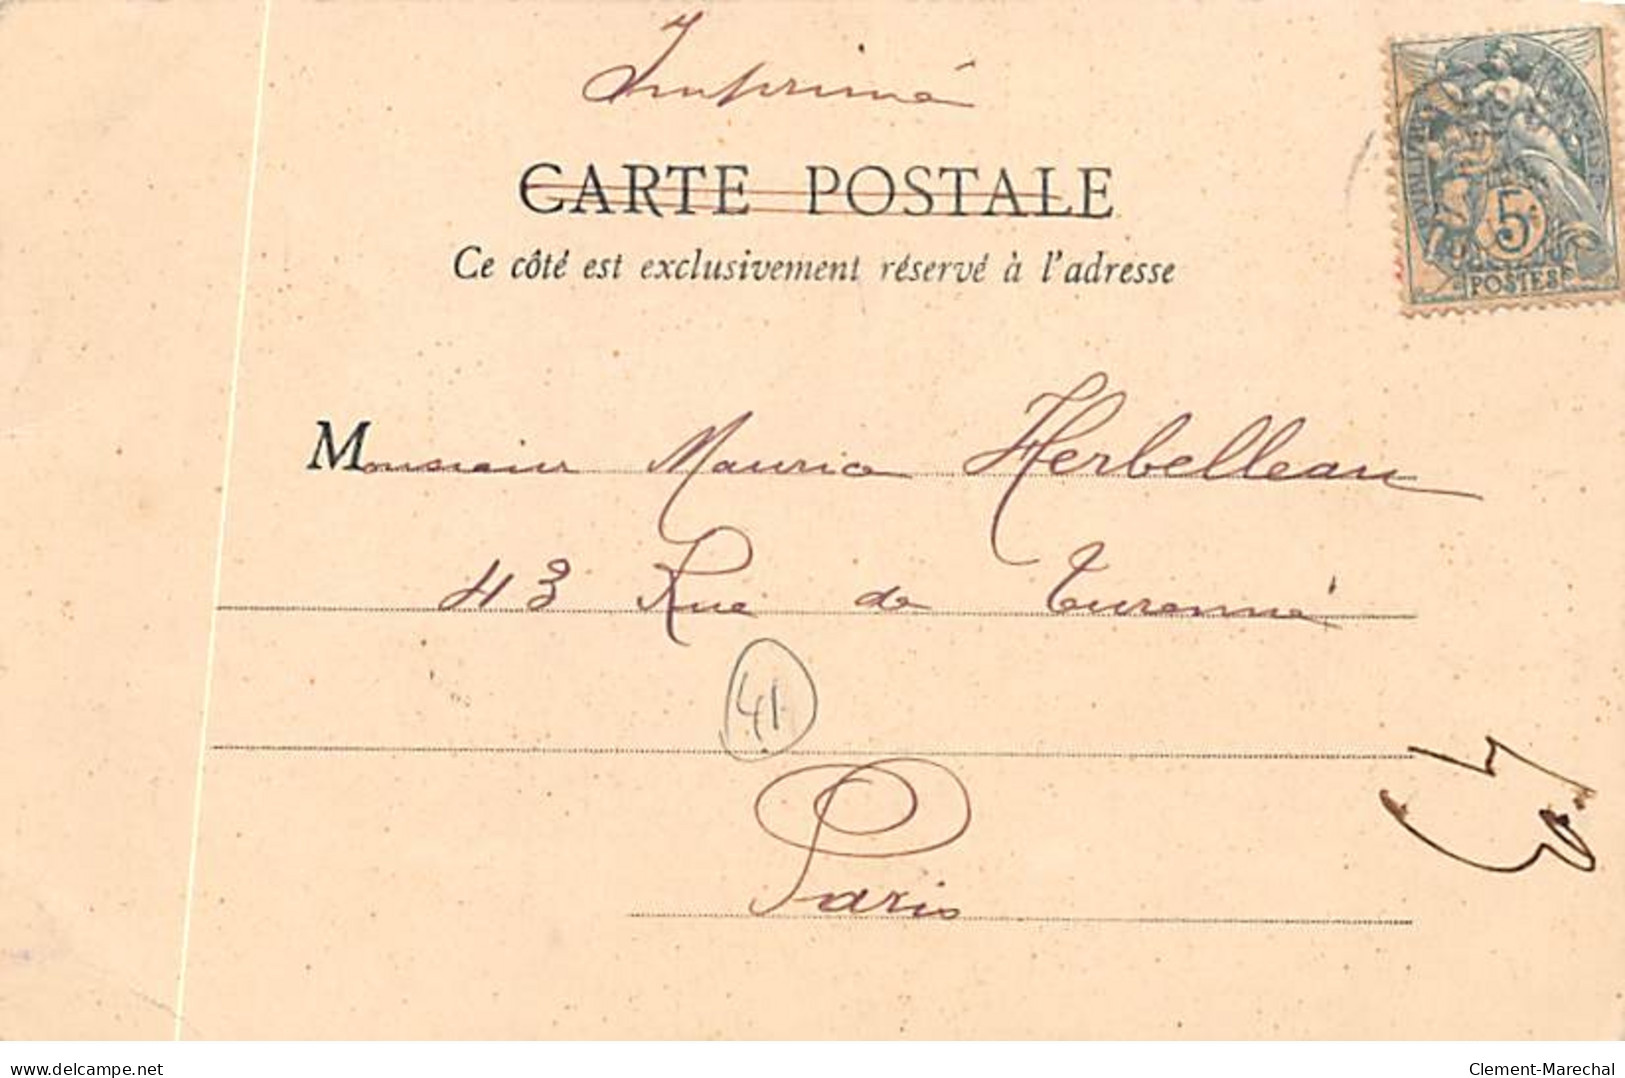 Imprimé
CARTE POSTALE
Ce côté est exclusivement réservé à l'adresse
5c
POSTES
Monsieur Maurice Herbelleau
43 Rue de Turenne
41
Paris
delcampe.net
Clement-Marechal